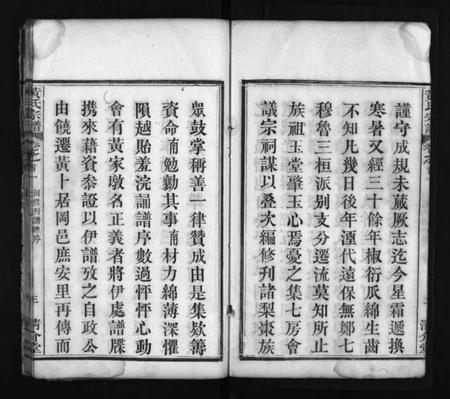 謹守成規未蕆厥志迄今星霜遞換
寒暑又經三十餘年椒衍瓜綿生齒
不知凡幾日後年湮代遠保無鄭七
穆魯三桓派别支分遷流莫知所止
族祖玉堂肇玉心焉憂之集七房會
議宗祠謀以叠次編修刊諸梨棗族
眾鼓掌稱善一律贊成由是集欵籌
資命甫勉勷其事甫材力綿薄深懼
隕越貽羞浣誦譜序數過怦怦心動
會有黃家墩名正義者將伊處譜牒
携來藉資叅證以伊譜攷之自政公
由饒遷黃卜居岡邑庶安里再傳而
黃氏宗譜
卷之首一
三
清介堂